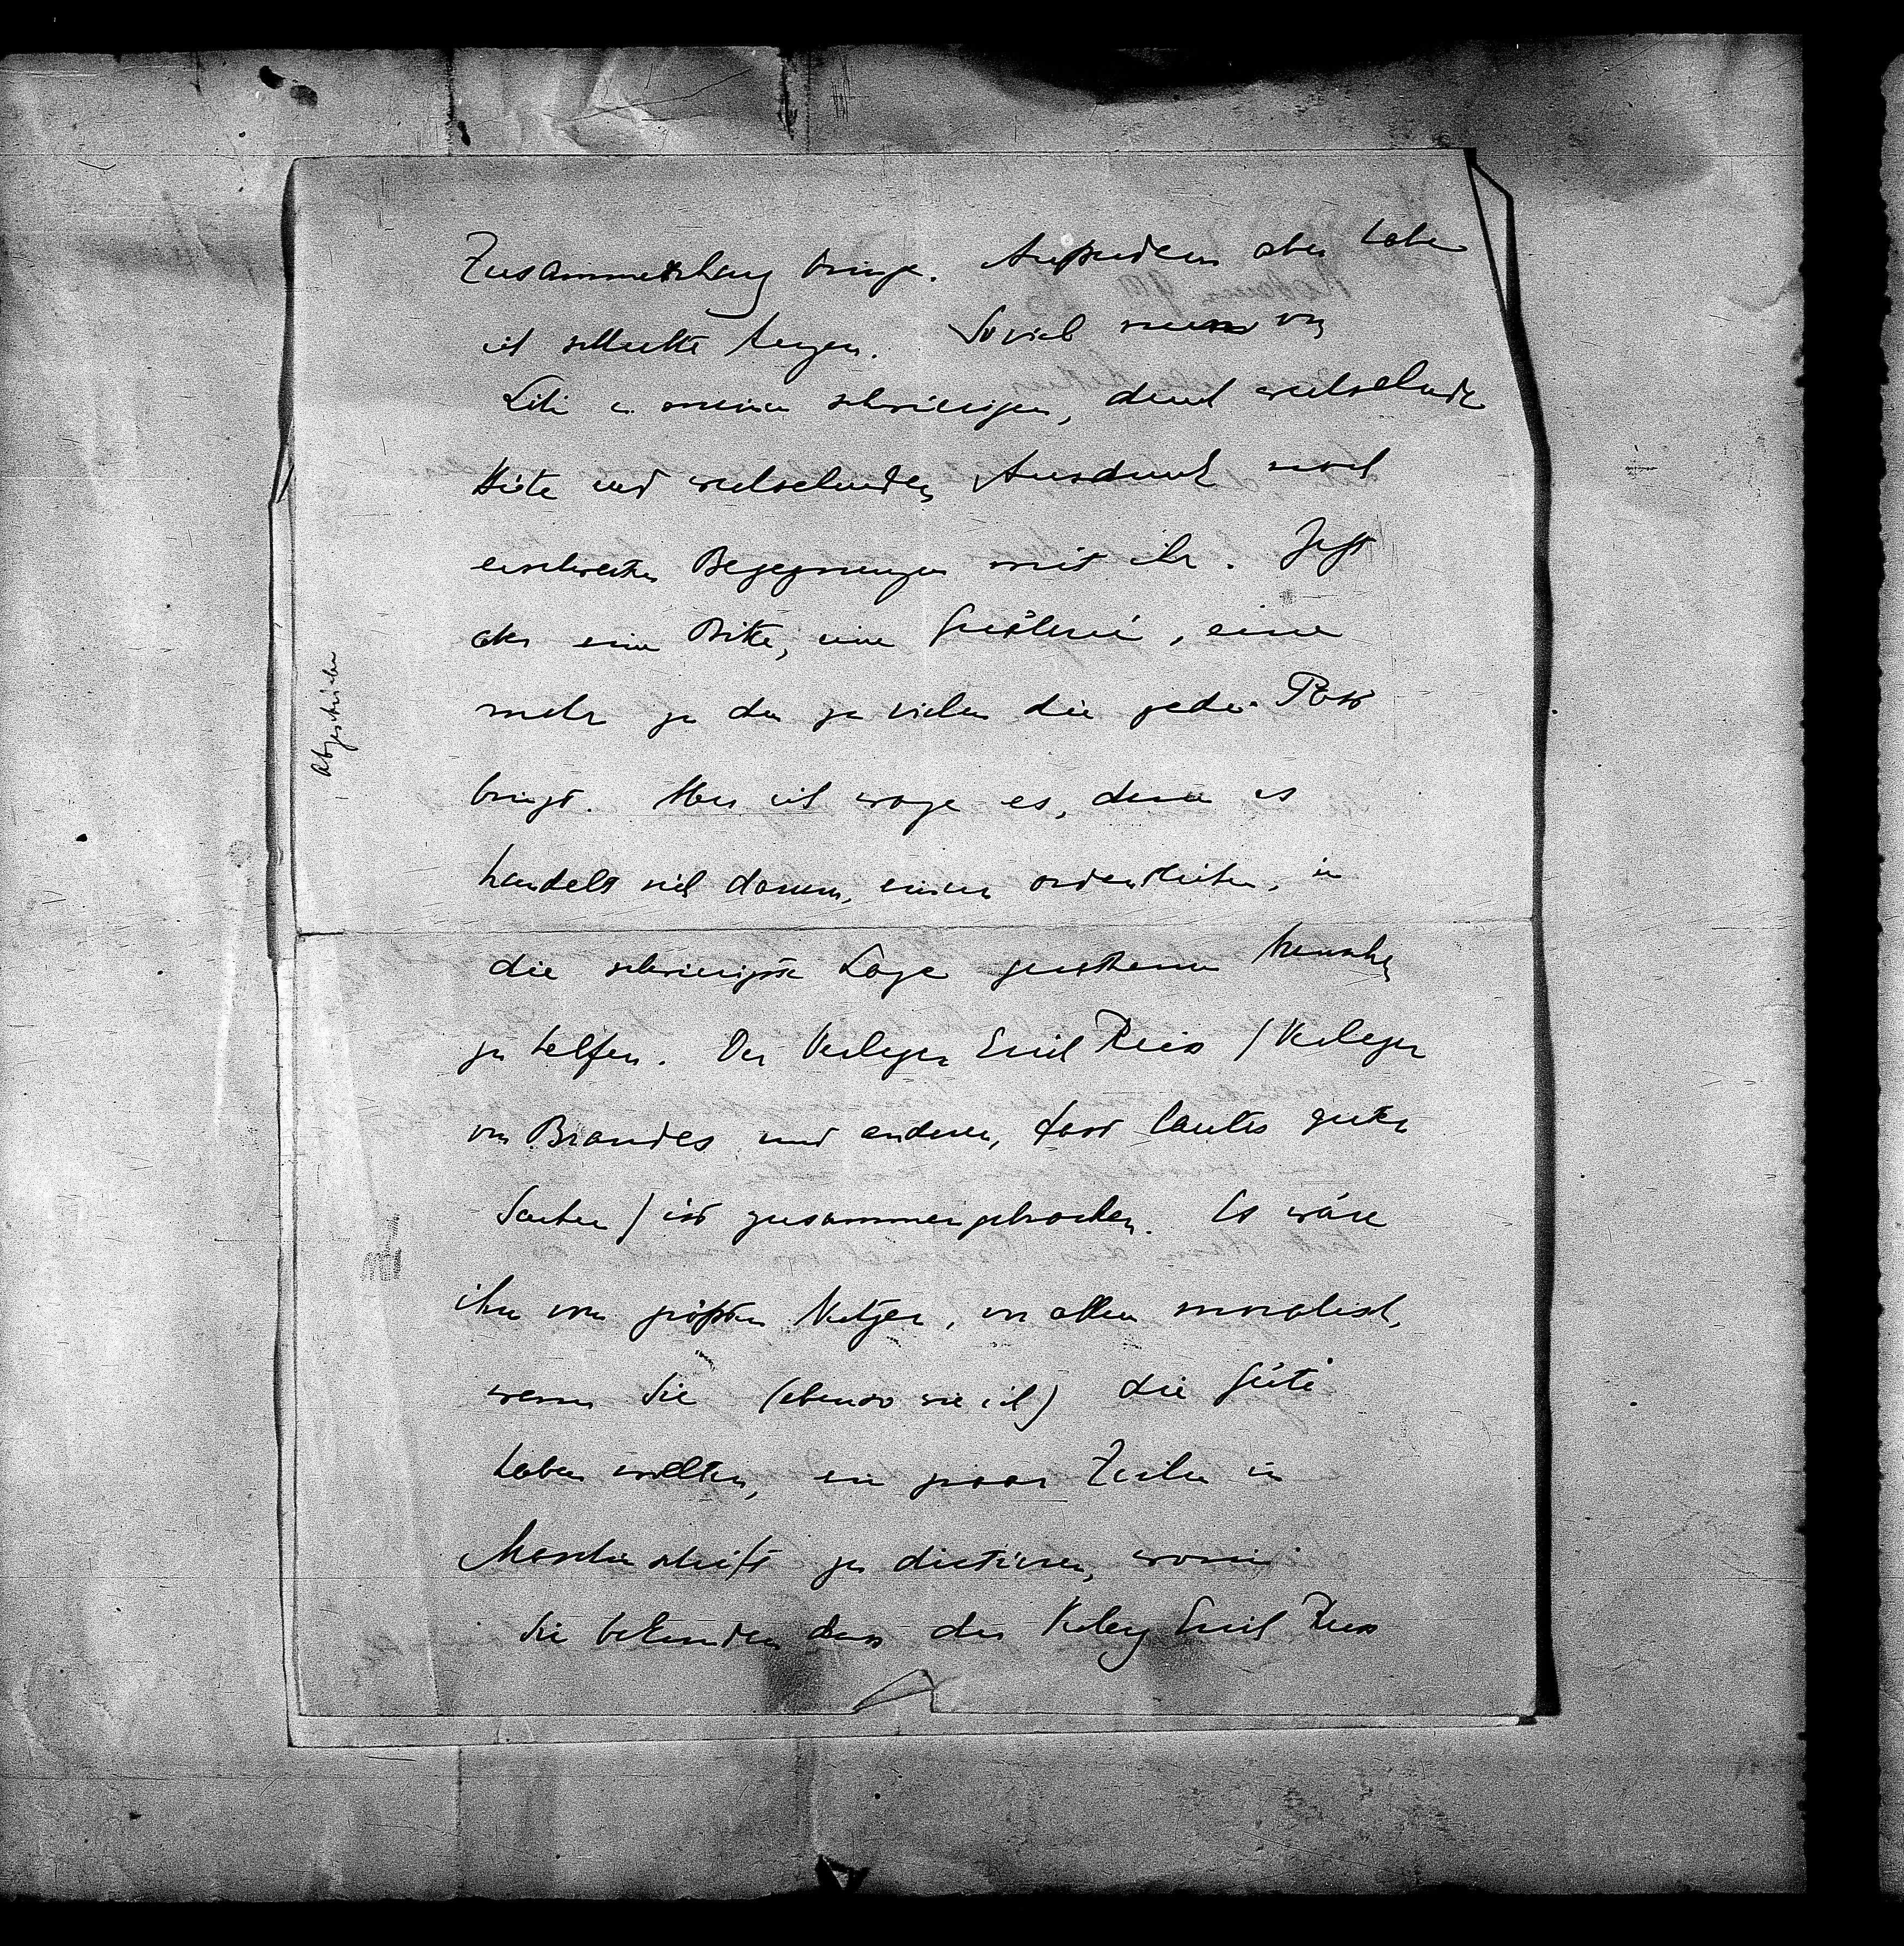 Zusammenhang bringe. Außerdem aber habe
ich schlechte Augen. Soviel nun von
Lili u meinen schwierigen, durch wechselnde
Hüte und wechselnden Ausdruck noch
erschwerten Begegnungen mit ihr. Jetzt
aber eine Bitte, eine Quälerei, eine
mehr zu den zu vielen die jede Post
bringt. Aber ich wage es, denn es
handelt sich darum, einem ordentlichen, in
die schwierigste Lage geratenen Menschen
zu helfen. Der Verleger Erich Reiss / Verleger
von Brandes und anderen, fast lauter guten
Sachen / ist zusammengebrochen. Es wäre
ihm vom größten Nutzen, vor allem moralisch,
wenn Sie (ebenso wie ich) die Güte
haben wollten, ein paar Zeilen in
Maschinschrift zu dictieren, worin
Sie bekunden dass der Verlag Erich Reiss
Abgeschrieben